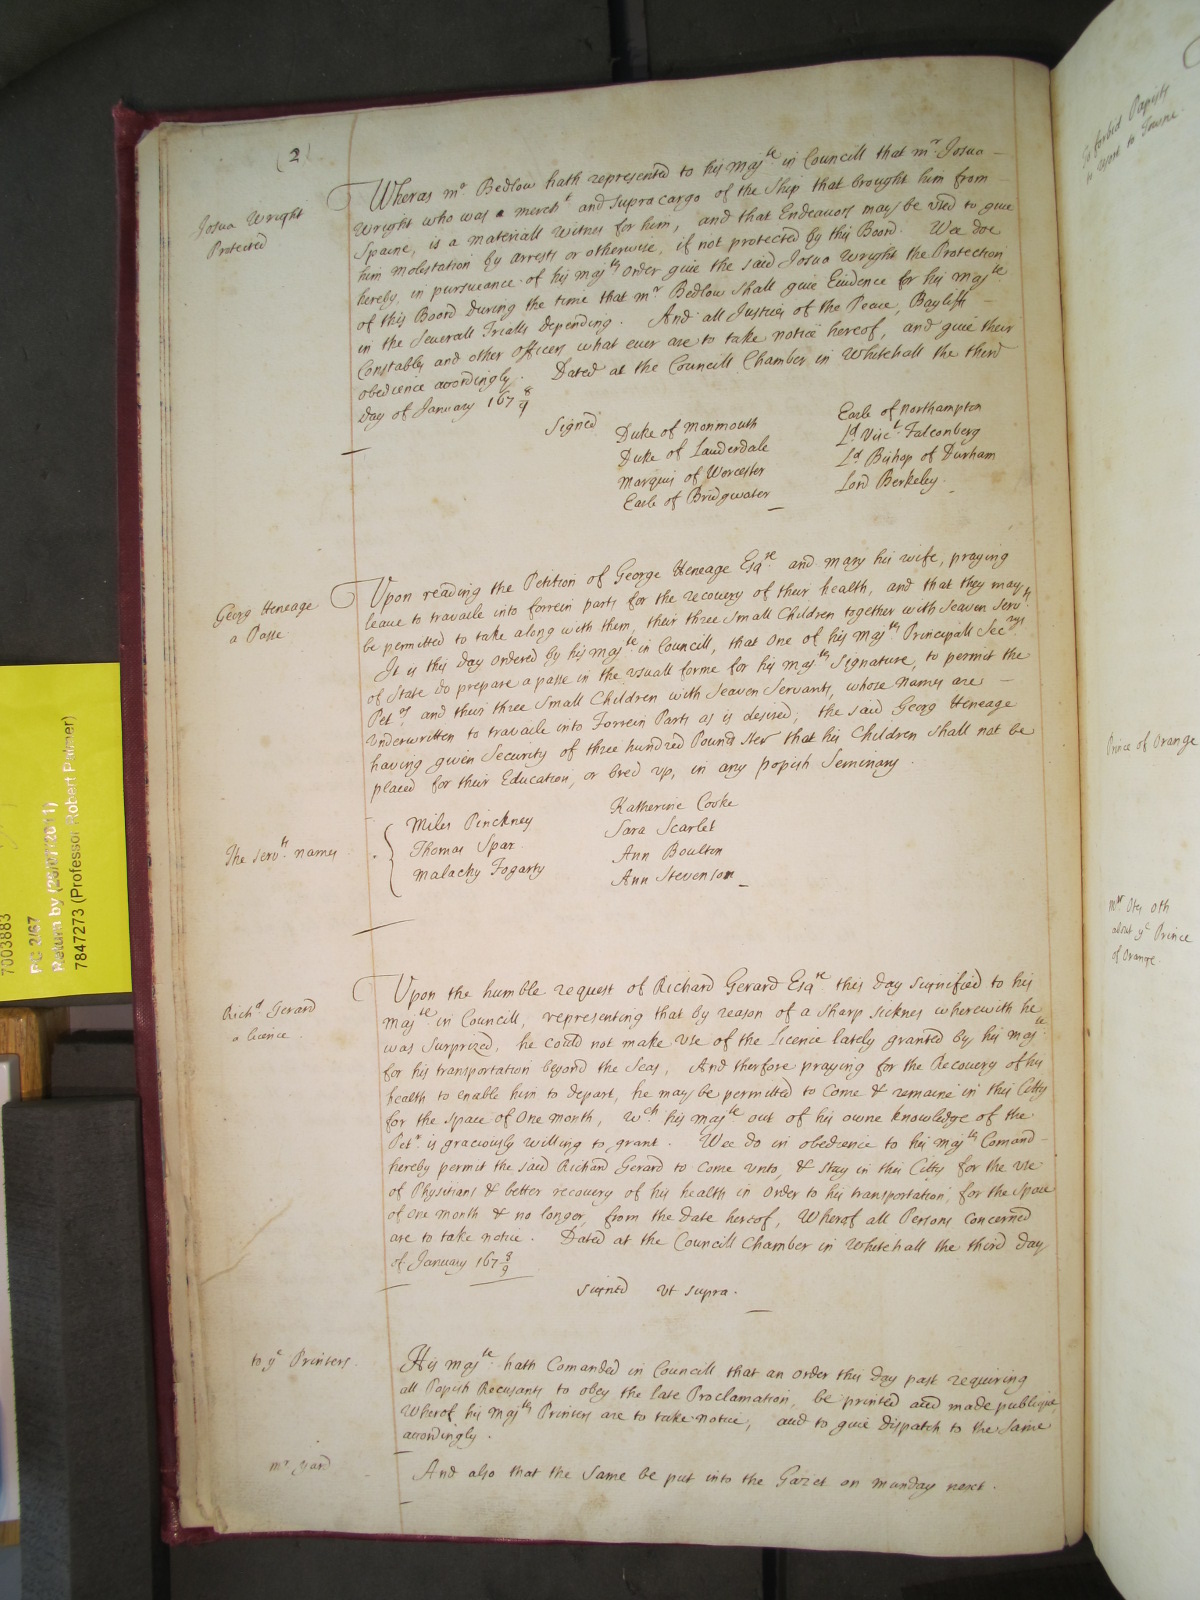 (2)
Josua Wright
Protected
Wheras mr Bedlow hath represented to his Majte in Councill that mr Josua
Wright who was a mercht and supracargo of the Ship that brought him from
Spaine, is a materiall Witnes for him, and that Endeavors may be used to give
him molestation by arrests or otherwise, if not protected by this Board. Wee doe
hereby, in pursueance of his Majts Order give the said Josua Wright the Protection
of this Board during the time that mr Bedlow shall give Evidence for his Majte
in the severall Trialls depending. And all Justices of the Peace, Bayliffs
Constables and other officers what ever are to take notice hereof, and give their
obedience accordingly. Dated at the Councill Chamber in Whitehall the third
day of January 167 8/9
Signed
Duke of Monmouth
Duke of Lauderdale
Marquis of Worcester
Earle of Bridgwater
Earle of Northampton
Ld Visct Falconberg
Ld Bishop of Durham
Lord Berkeley.
Georg Heneage
a Passe
Upon reading the Petition of George Heneage Esqre and mary his wife, praying
leave to travaile into forrein parts for the recovery of their health, and that they may
be permitted to take along with them, their three small Children together with seaven servts
It is this day ordered by his Majte in Councill, that one of his Majts Principall Secrys
of State do prepare a passe in the usuall forme for his Majts Signature, to permit the
Petrs and their three small Children with seaven servants, whose names are
underwritten to travaile into Forrein Parts as is desired; the said Georg Heneage
having given Security of three hundred Pound ster that his Children shall not be
placed for their Education, or bred up, in any popish Seminary.
The servts names
Miles Pinckney
Thomas Spar
Malachy Fogarty
Katherine Cooke
Sara Scarlet
Ann Boulton
Ann Stevenson
Richd Gerard
a licence
Upon the humble request of Richard Gerard Esqre this day signified to his
Majte in Councill, representing that by reason of a sharp sicknes wherewith he
was surprized, he could not make use of the Licence lately granted by his Majte
for his transportation beyond the Seas, And therfore praying for the Recovery of his
health to enable him to depart, he may be permitted to come & remaine in this Citty
for the space of one month, wch his Majte out of his owne knowledge of the
Petr is graciously willing to grant. Wee do in obedience to his Majts Comand
hereby permit the said Richard Gerard to come unto, & stay in this Citty for the use
of Physitians & better recovery of his health in order to his transportation, for the space
of one month & no longer, from the date hereof, Wherof all Persons Concerned
are to take notice. Dated at the Councill Chamber in Whitehall the third day
of January 167 8/9
signed ut supra.
to ye Printers
His Majte hath Comanded in Councill that an order this day past requiring
all Popish Recusants to obey the late Proclamation, be printed and made publique
Wherof his Majts Printers are to take notice, and to give dispatch to the same
accordingly.
mr yard
And also that the same be put into the Gazet on munday next.
to forbid Papists
to come to Towne
Prince of Orange
about ye Prince
of Orange.
7003883
PC 2/67
Return by (26/07/2011)
7847273 (Professor Robert Palmer)